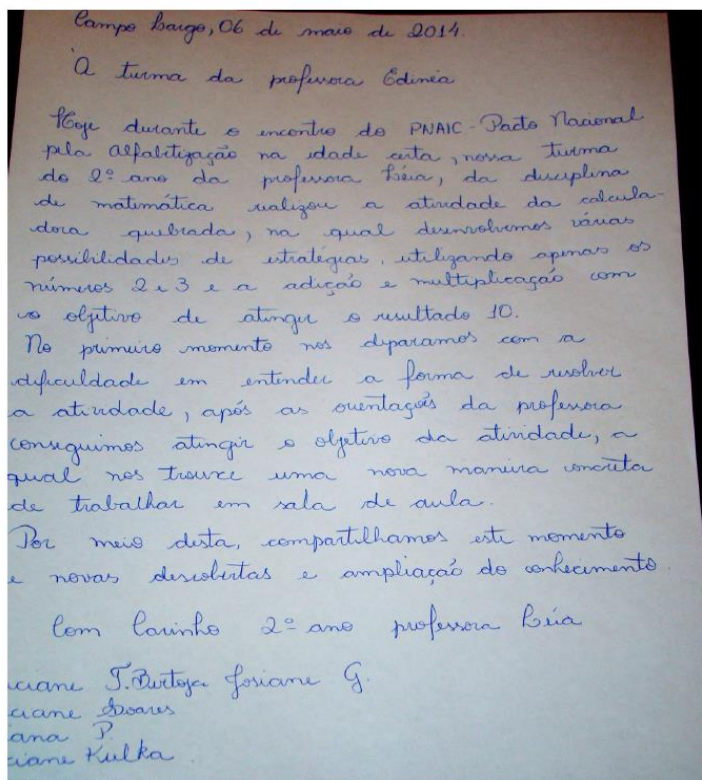 Campo Largo, 06 de maio de 2014.
À turma da professora Edinéa
Hoje durante o encontro do PNAIC - Pacto Nacional
pela Alfabetização na idade certa, nossa turma
do 2º ano da professora Léia, da disciplina
de matemática realizou a atividade da calcula-
dora quebrada, na qual desenvolvemos várias
possibilidades de estratégias, utilizando apenas os
números 2 e 3 e a adição e multiplicação com
o objetivo de atingir o resultado 10.
No primeiro momento nos deparamos com a
dificuldade em entender a forma de resolver
a atividade, após as orientações da professora
conseguimos atingir o objetivo da atividade, a
qual nos trouxe uma nova maneira concreta
de trabalhar em sala de aula.
Por meio desta, compartilhamos este momento
e novas descobertas e ampliação do conhecimento.
Com Carinho 2º ano professora Léia
ciane T. Bertoja Josiane G.
ciane Soares
iana P.
ciane Kulka